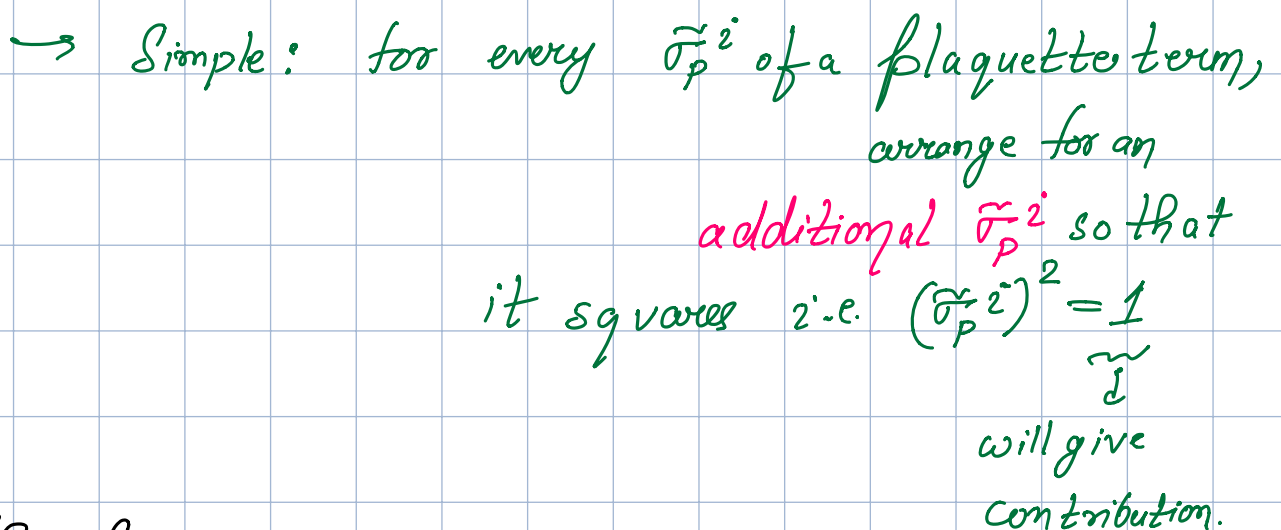 → Simple: for every σ̃_p^i of a plaquette term,
arrange for an
additional σ̃_p^i so that
it squares i.e. (σ̃_p^i)^2 = 1
will give
contribution.